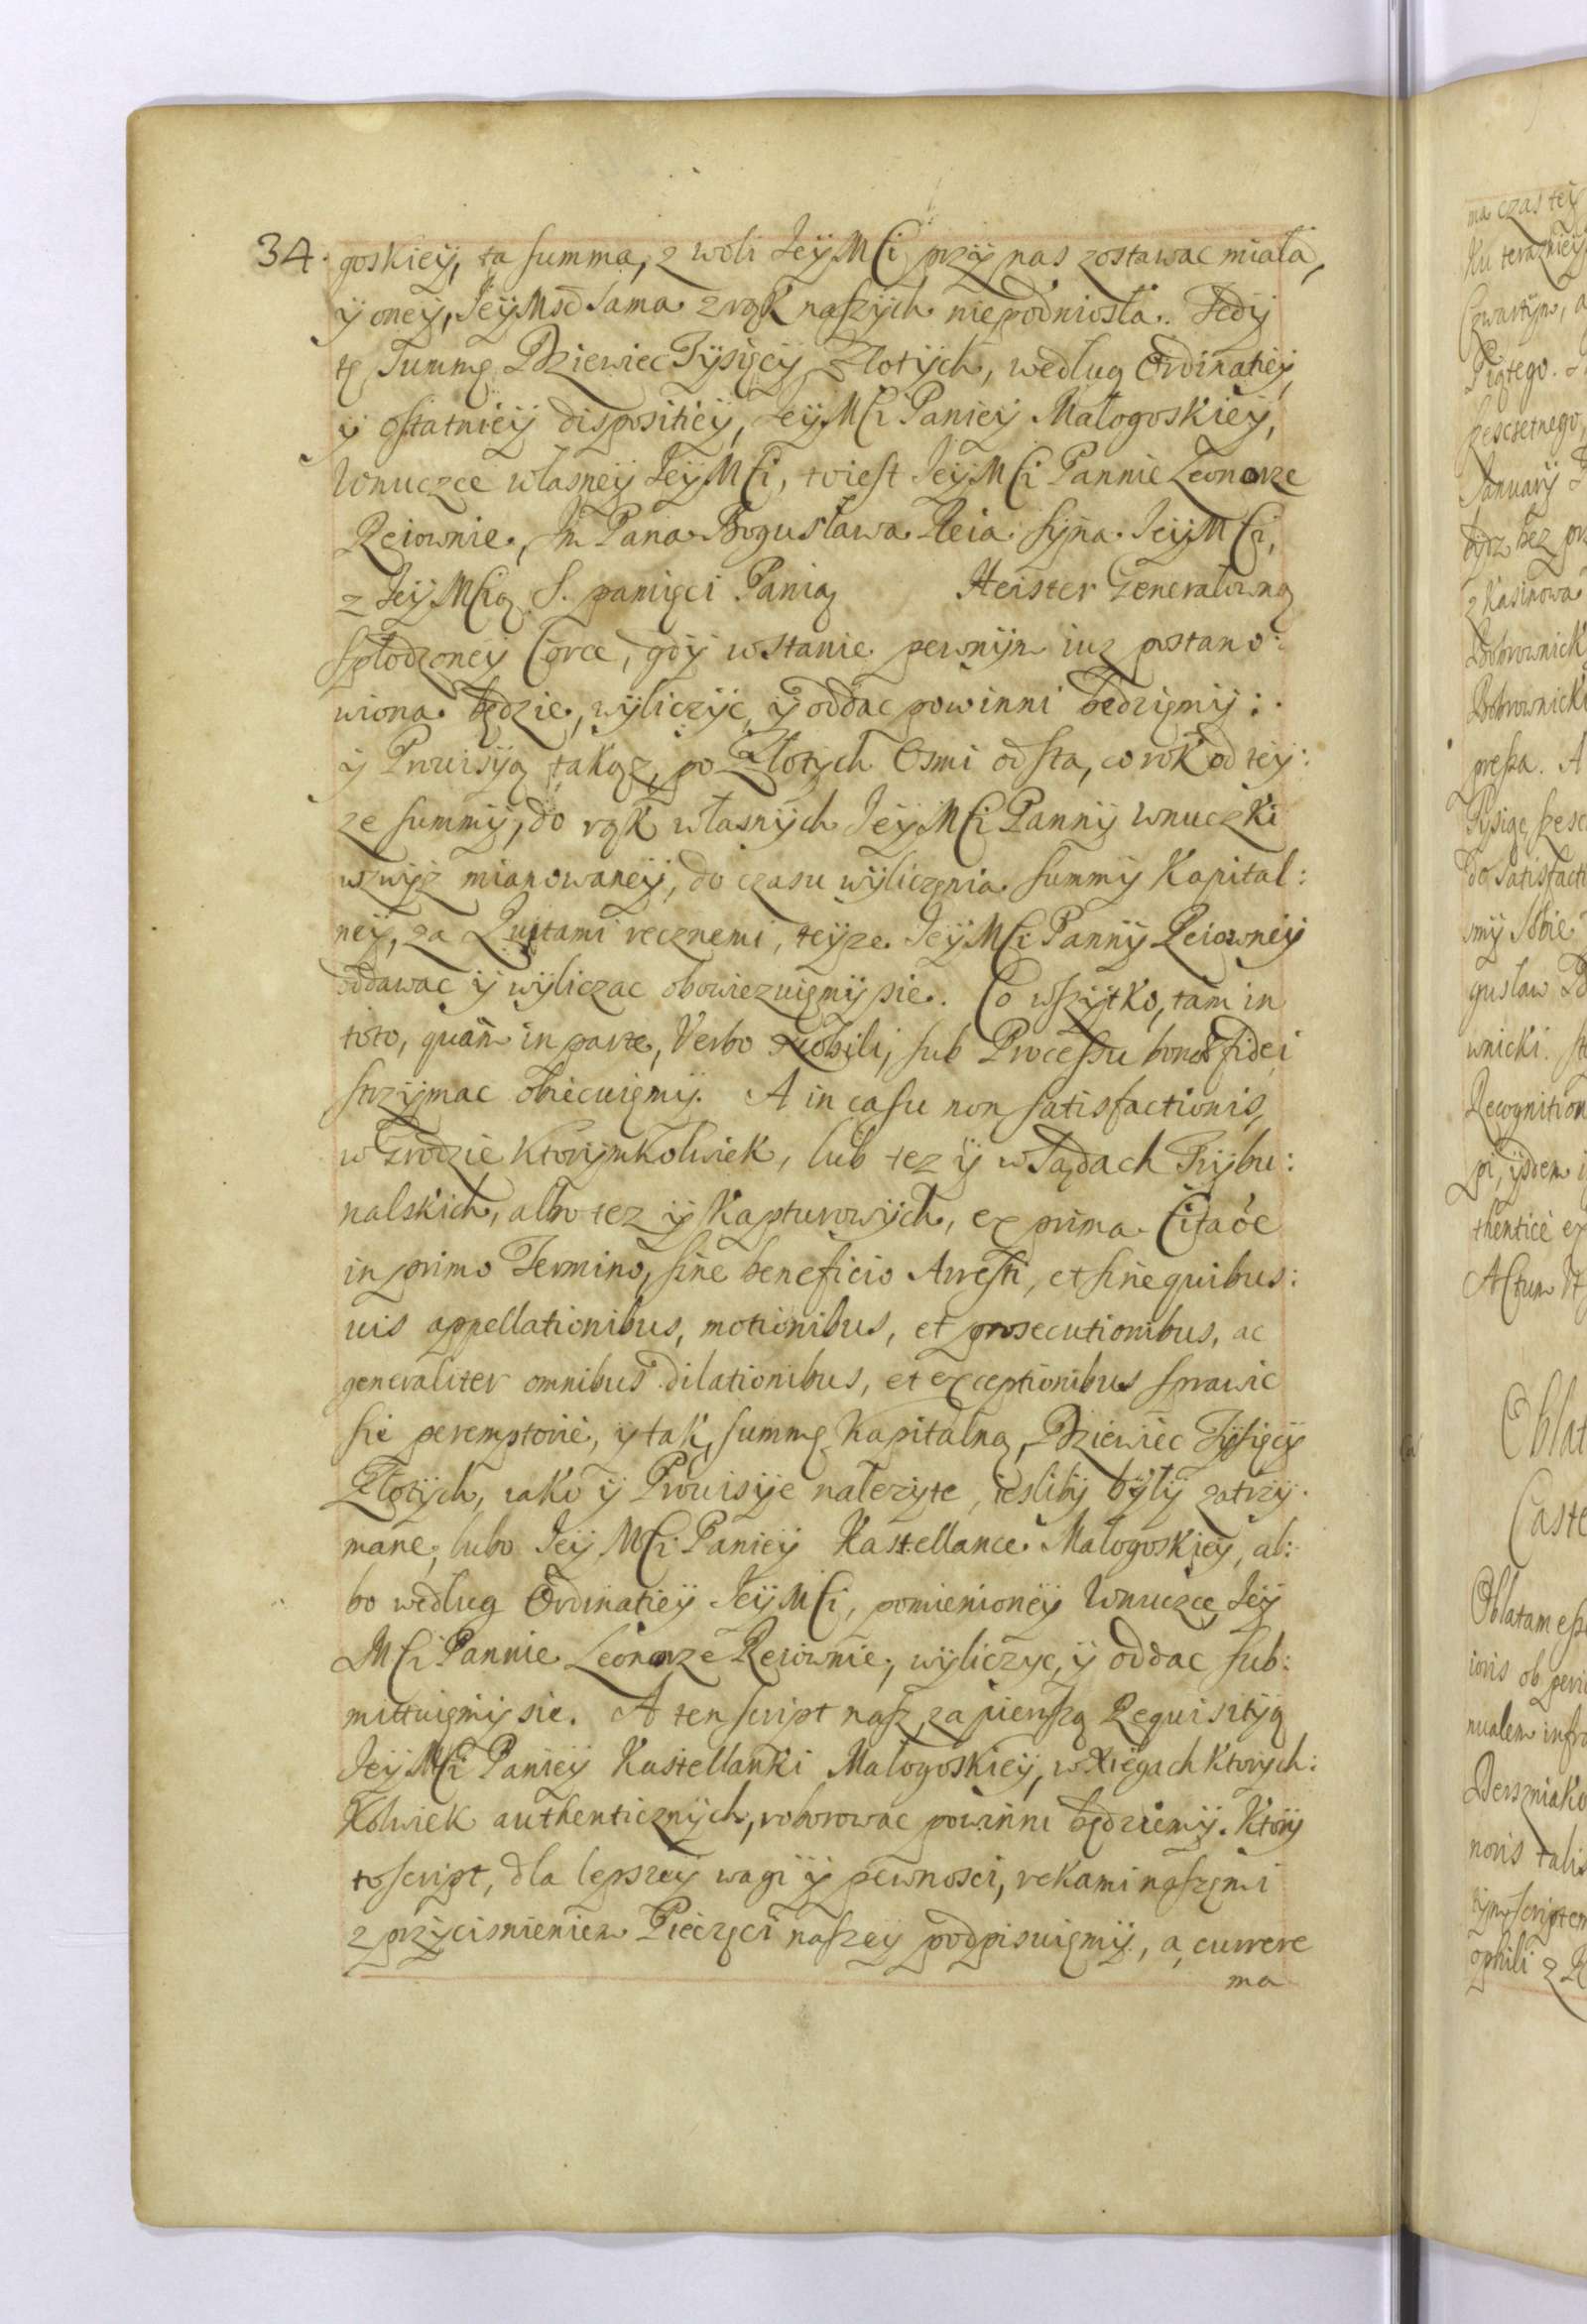 34. goskiey, ta summa, z woli Jey Mći przÿ nas zostawac miała,
ÿ oneÿ, Jeÿ Mść sama z rąk naszÿch niepodniosła. Tedÿ
tę Summę Dziewiec Tÿsięcÿ Złotÿch, według Ordinatieÿ,
ÿ ostatnieÿ dispositieÿ, Jeÿ Mći Panieÿ Małogoskieÿ,
Wnuczce własneÿ Jeÿ Mći, to iest Jeÿ Mći Pannie Leonorze
Reiownie, Im Pana Bogusława Reia sÿna Jeÿ Mći,
z Jeÿ Mćią S. pamięci Panią Heister Generałowną
spłodzoneÿ Corce, gdÿ w stanie pewnÿm iuz postano:
wiona będzie, wÿliczÿc, ÿ oddac powinni będziemÿ:
ÿ Prouisÿą takąz, po Złotych Osmi od sta, co rok od teÿ:
ze summÿ, do rąk własnÿch Jeÿ Mći Pannÿ Wnuczki
wzwÿz mianowaneÿ, do czasu wÿliczenia summÿ Kapital:
neÿ, za Quitami recznemi, teÿze Jeÿ Mći Pannÿ Reiowneÿ
oddawac ÿ wÿliczac obowiezuiemÿ sie. Co wszÿtko, tam in
toto, quam in parte, Verbo Nobili, sub Processu bonæ fidei
strzÿmac obiecuiemÿ. A in casu non satisfactionis,
w Grodzie ktorÿmkolwiek, lub tez ÿ w Sądach Trÿbu:
nalskich, albo tez ÿ Kapturowÿch, ex prima Citaõe
in primo Termino, sine beneficio Arresti, et sine quibus:
uis appellationibus, motionibus, et prosecutionibus, ac
generaliter omnibus dilationibus, et exceptionibus sprawic
sie peremptorie, y tak, summę Kapitalną, Dziewiec Tÿsięcÿ
Złotÿch, iako ÿ Prouisÿe nalezyte, iesliby bÿłÿ zatrzÿ:
mane, lubo Jeÿ Mći Panieÿ Kasztellance Małogoskieÿ, al:
bo według Ordinatieÿ Jeÿ Mći, pomienioneÿ Wnuczce Jeÿ
Mći Pannie Leonorze Reiownie, wÿliczyc, ÿ oddac sub:
mittuiemÿ sie. A ten script nasz, za pierwszą Requisitÿą
Jeÿ Mći Panieÿ Kasztellanki Małogoskieÿ, w Xięgach ktorych:
kolwiek authenticznÿch, roborowac powinni będziemÿ. Ktorÿ
to script, dla lepszeÿ wagi ÿ pewnosci, rekami naszemi
z przÿcisnieniem Pieczęci naszeÿ podpisuiemÿ, a currere
ma